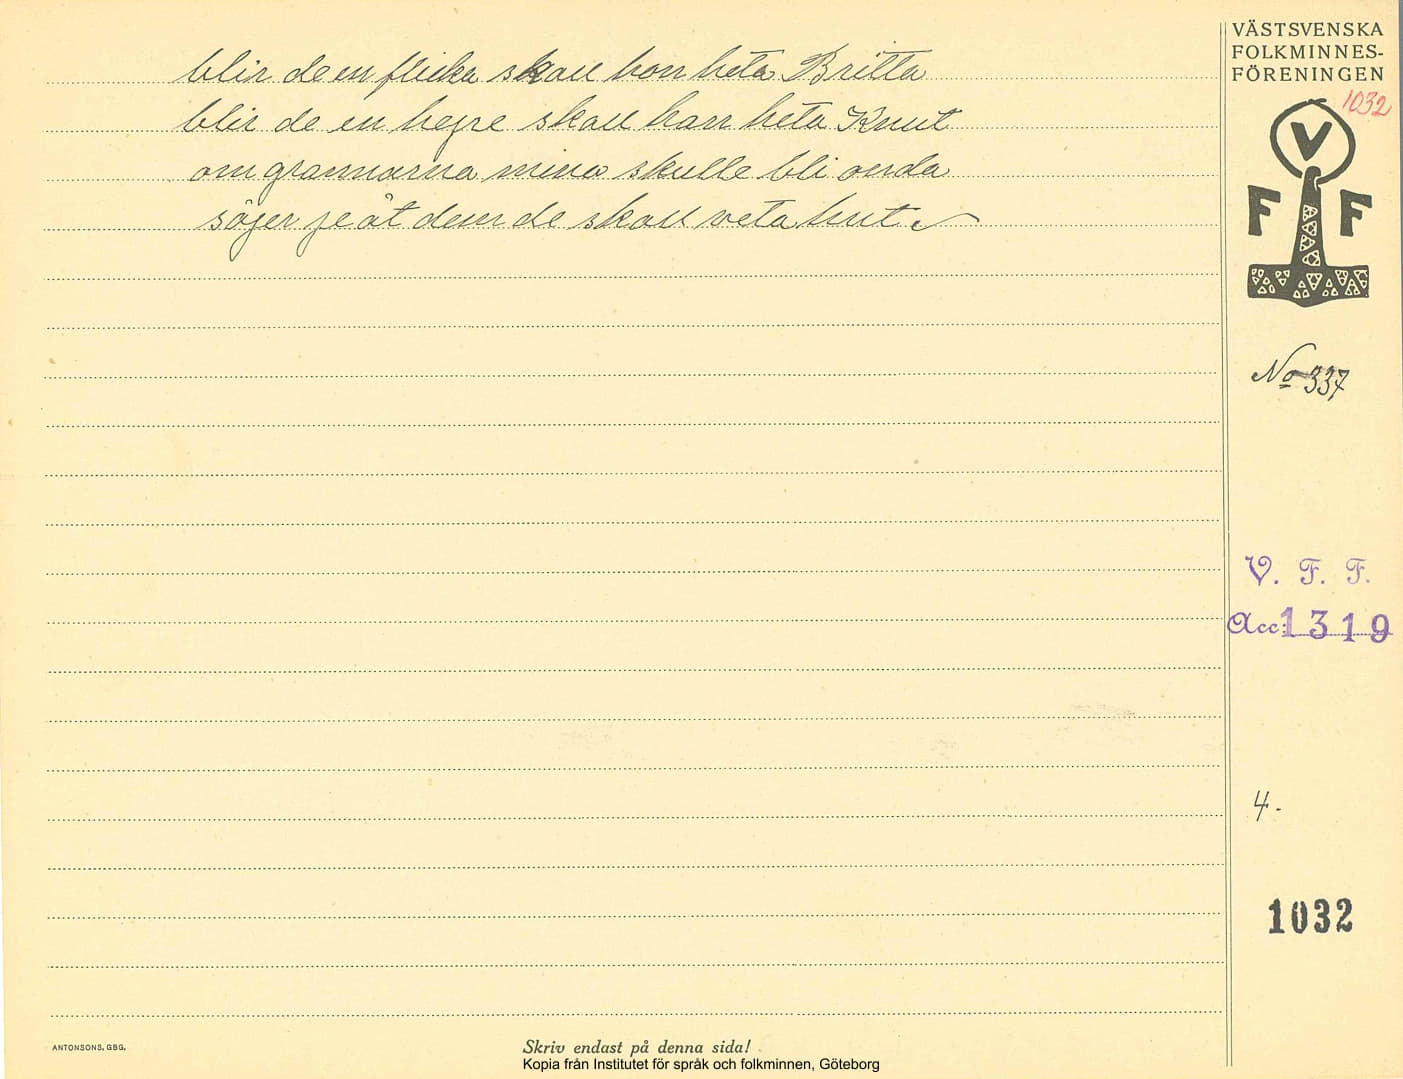 blir de en flicka skall hon heta Britta
blir de en hejre skall han heta Knut
om grannarna mina skulle bli onda
säjer je åt dem de skall veta hut.
VÄSTSVENSKA
FOLKMINNES-
FÖRENINGEN
1032
V
F F
No 337
V. F. F.
Acc: 1319
4.
1032
ANTONSONS, GBG.
Skriv endast på denna sida!
Kopia från Institutet för språk och folkminnen, Göteborg